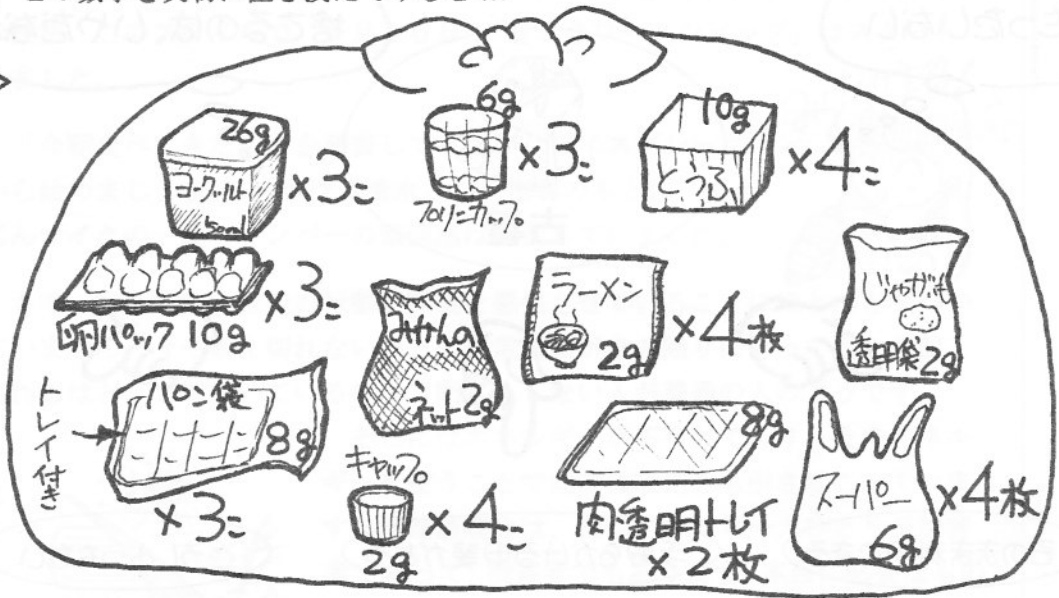 26g
ヨーグルト
50ml
×3コ
6g
プリンカップ
×3コ
10g
とうふ
×4コ
卵パック 10g
×3コ
みかんの
ネット2g
ラーメン
2g
×4枚
じゃがいも
透明袋2g
トレイ付き
パン袋
8g
×3コ
キャップ
2g
×4コ
8g
肉透明トレイ
×2枚
スーパー
6g
×4枚